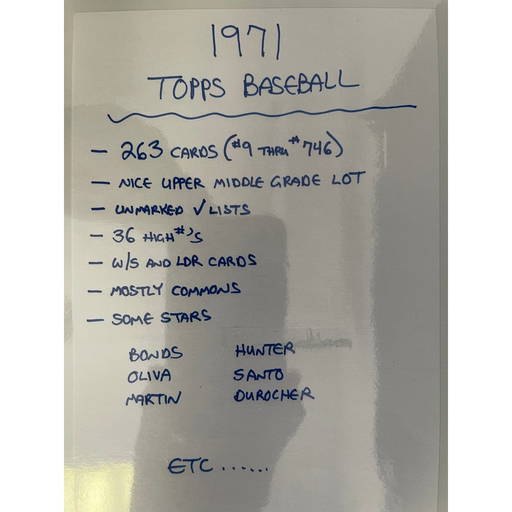 1971
TOPPS BASEBALL
- 263 CARDS (#9 THRU #746)
- NICE UPPER MIDDLE GRADE LOT
- UNMARKED √ LISTS
- 36 HIGH #'S
- W/S AND LDR CARDS
- MOSTLY COMMONS
- SOME STARS
BONDS HUNTER
OLIVA SANTO
MARTIN DUROCHER
ETC ......